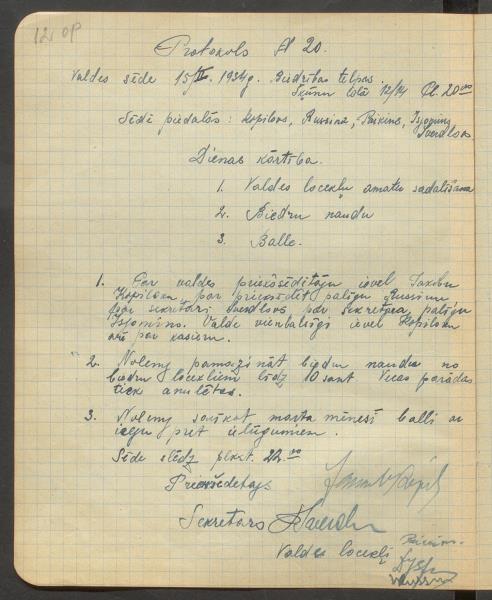 12 op
Protokols № 20.
Valdes sēde 15/II. 1934g. Biedrības telpās
Skūnu ielā 12/14 Pl. 20⁰⁰
Sēdē piedalās: Kopilovs, Russina, Beikins, Isjomins,
Sverdlovs.
Dienas kārtība.
1. Valdes locekļu amatu sadalīšana
2. Biedru naudu
3. Balle.
1. Par valdes priekšsēdētāju ievel
Kopilovu, par priekšsēdēt. palīgu Russinu
par sekretāri Sverdlovs par sekretara palīgu
Isjominu. Valde vienbalsīgi ievel Kopilovu
arī par kasieru.
2. Nolemj pamazināt biedru naudu no
biedru locekļiem līdz 10 sant. Vecas parādas
tiek anulētas.
3. Nolemj sarīkot marta mēnesī balli ar
ieeju pret ielūgumiem.
Sēde slēdz plkst. 22.⁰⁰
Priekšsēdētājs
Sekretārs
Valdes locekļi